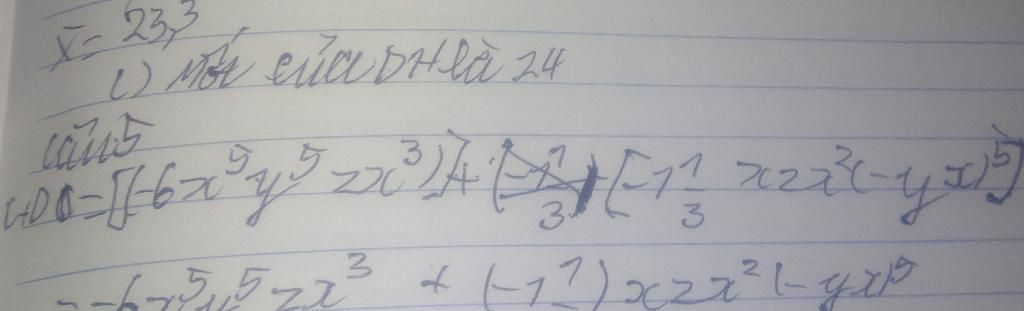 X̄ = 23,3
c) Mốt của DH là 24
Câu 5
C+D = [(-6x⁵y⁵zx³)] + [-1 1/3 xzx²(-yx)⁵]
= -6x⁵y⁵zx³ + (-1 1/3) xzx²(-yx)⁵